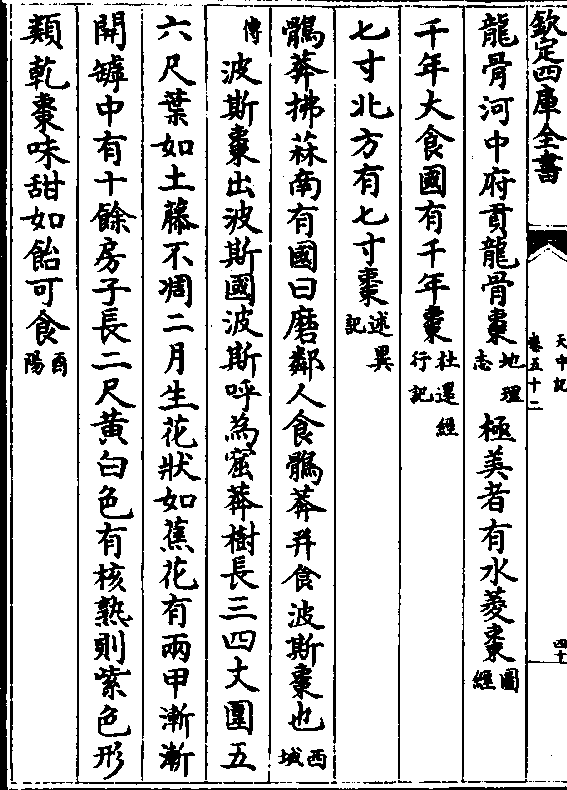 欽定四庫全書
天中記
卷五十二
四十
龍骨河中府貢龍骨棗地理志 極美者有水菱棗圖經
千年大食國有千年棗杜還經行記
七寸北方有七寸棗述異記
鶻莽拂菻南有國曰磨鄰人食鶻莽幷食波斯棗也西域
傳 波斯棗出波斯國波斯呼為窟莽樹長三四丈圍五
六尺葉如土藤不凋二月生花狀如蕉花有兩甲漸漸
開罅中有十餘房子長二尺黃白色有核熟則紫色形
類乾棗味甜如飴可食酉陽